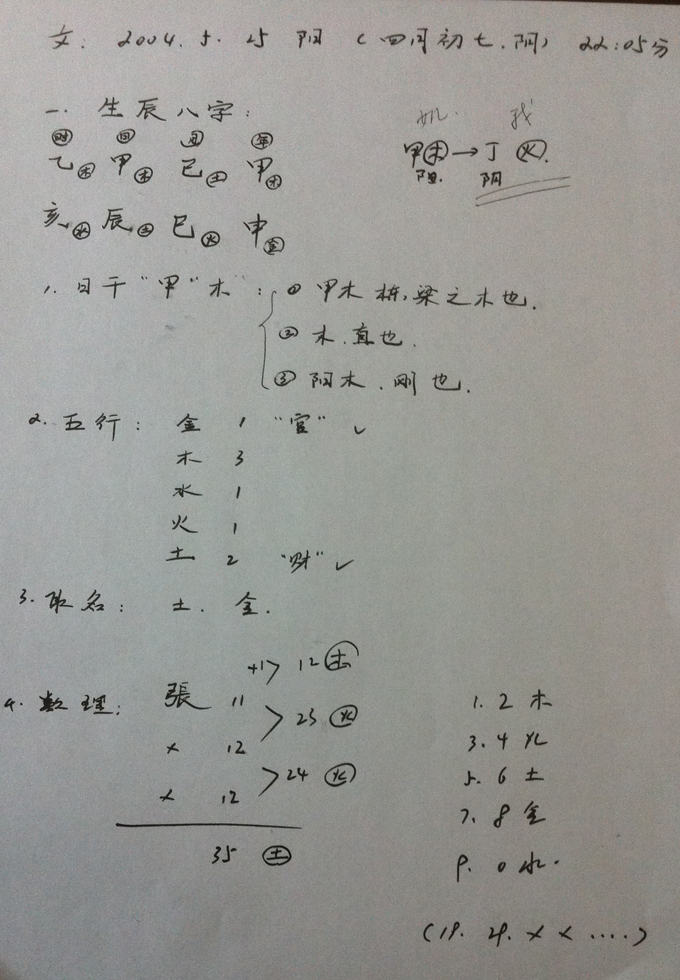 文: 2004.5.25 阳 (四月初七.阴) 22:05分
一. 生辰八字:
时 日 月 年
乙木 甲木 己土 甲木
亥水 辰土 巳火 申金
我
甲木→丁火.
阳. 阴
1. 日干"甲"木: ① 甲木栋,梁之木也.
② 木.直也.
③ 阳木.刚也.
2. 五行: 金 1 "官" ✓
木 3
水 1
火 1
土 2 "财" ✓
3. 取名: 土. 金.
4. 数理:
+1> 12 土
張 11
> 23 火
× 12
> 24 火
× 12
35 土
1. 2 木
3. 4 火
5. 6 土
7. 8 金
9. 0 水.
(19. 29. × × ....)